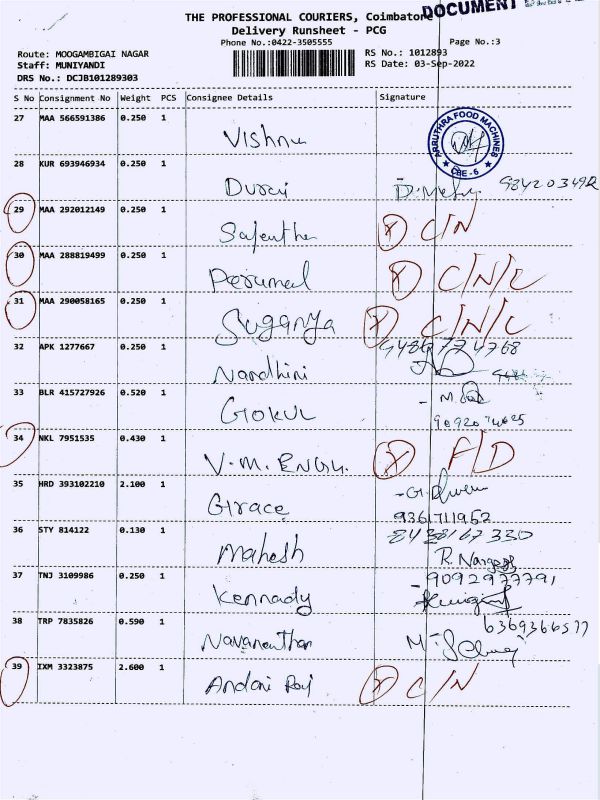 THE PROFESSIONAL COURIERS, Coimbatore
DOCUMENT
Delivery Runsheet - PCG
Phone No.:0422-3505555
Page No.:3
Route: MOOGAMBIGAI NAGAR
RS No.: 1012893
Staff: MUNIYANDI
RS Date: 03-Sep-2022
DRS No.: DCJB101289303
S No Consignment No Weight PCS Consignee Details Signature
27 MAA 566591386 0.250 1 Vishnu
ARRUTHRA FOOD MACHINES
CBE-6
28 KUR 693946934 0.250 1 Durai
9842034912
29 MAA 292012149 0.250 1 X C/N
30 MAA 288819499 0.250 1 Perumal X C/N/C
31 MAA 290058165 0.250 1 Suganya X C/N/C
32 APK 1277667 0.250 1 Nandhini
33 BLR 415727926 0.520 1 Gokul
34 NKL 7951535 0.430 1 V.M. ENGG. X F/D
35 HRD 393102210 2.100 1 Grace
9361711952
36 STY 814122 0.130 1 Mahesh
8438167330
37 TNJ 3109986 0.250 1 Kennady
9092977791
38 TRP 7835826 0.590 1
6369366577
39 IXM 3323875 2.600 1 X C/N